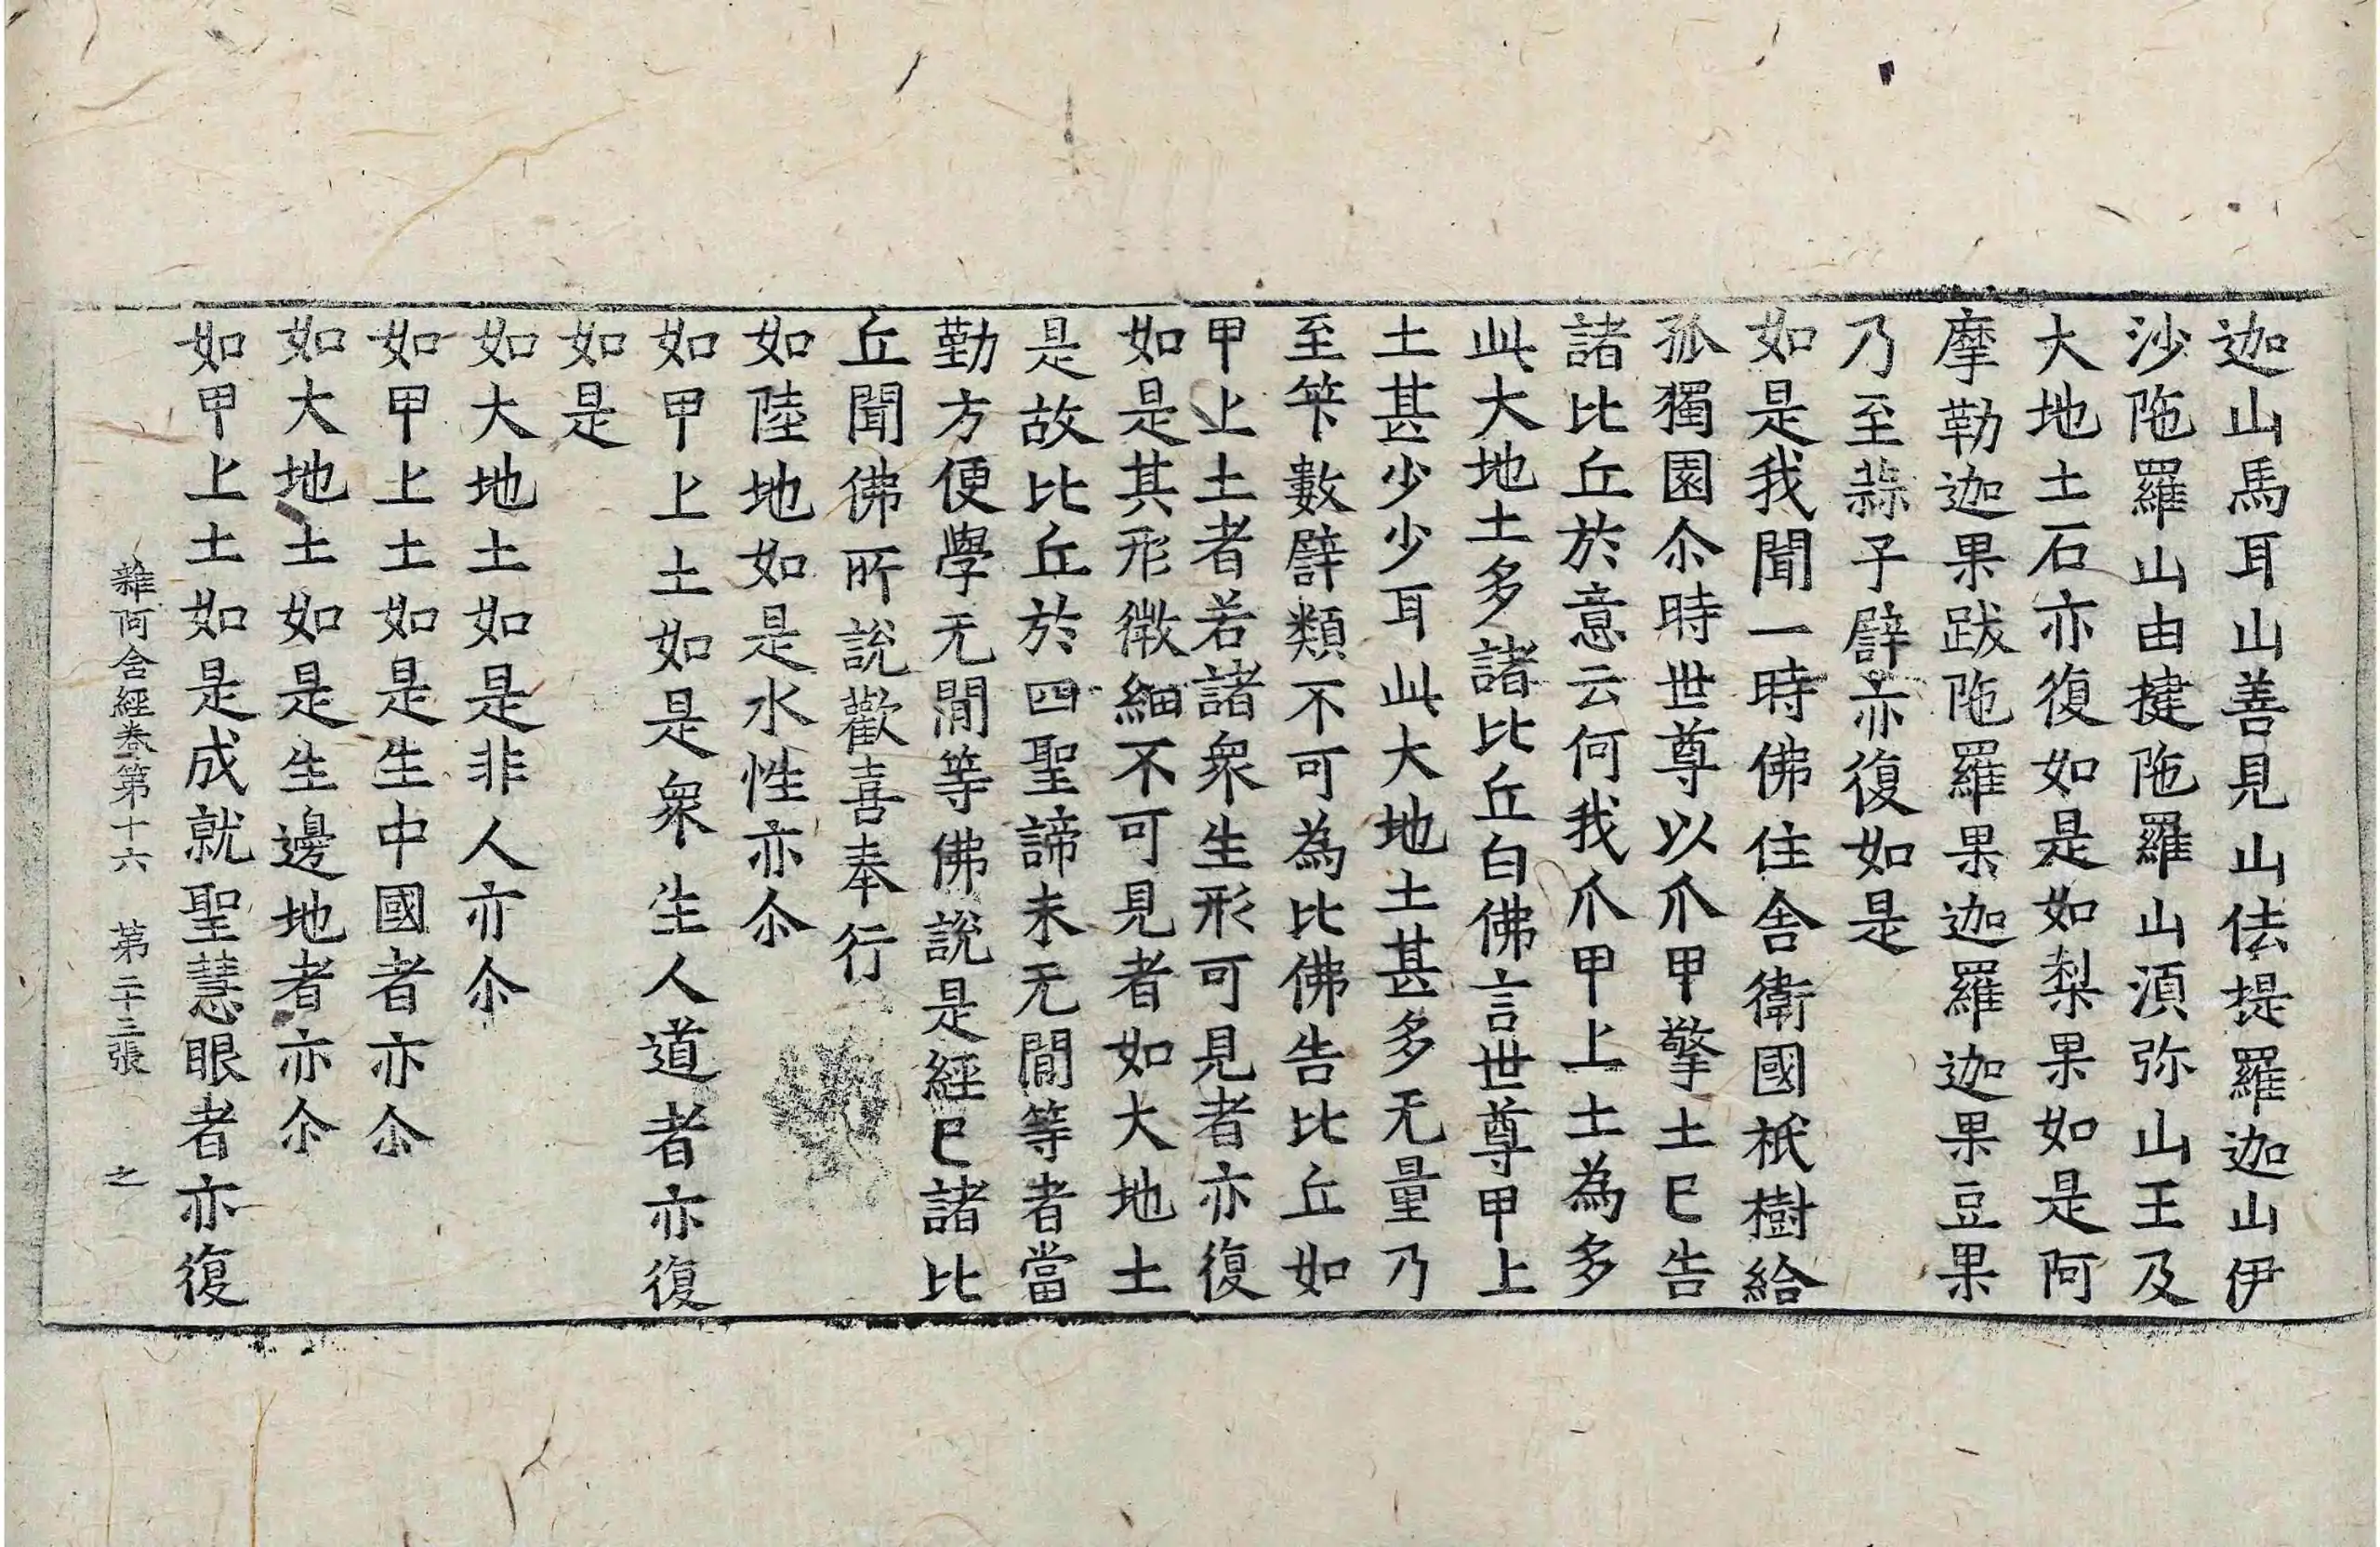 迦山馬耳山善見山佉提羅迦山伊
沙陁羅山由揵陁羅山湏弥山王及
大地土石亦復如是如梨果如是阿
摩勒迦果跋陁羅果迦羅迦果豆果
乃至蒜子譬亦復如是
如是我聞一時佛住舍衛國祇樹給
孤獨園尒時世尊以爪甲擎土已告
諸比丘於意云何我爪甲上土為多
此大地土多諸比丘白佛言世尊甲上
土甚少少耳此大地土甚多无量乃
至筭數譬類不可為比佛告比丘如
甲上土者若諸衆生形可見者亦復
如是其形微細不可見者如大地土
是故比丘於四聖諦未无閒等者當
勤方便學无閒等佛說是經已諸比
丘聞佛所說歡喜奉行
如陸地如是水性亦尒
如甲上土如是衆生人道者亦復
如是
如大地土如是非人亦尒
如甲上土如是生中國者亦尒
如大地土如是生邊地者亦尒
如甲上土如是成就聖慧眼者亦復
雜阿含經卷第十六 第二十三張 之